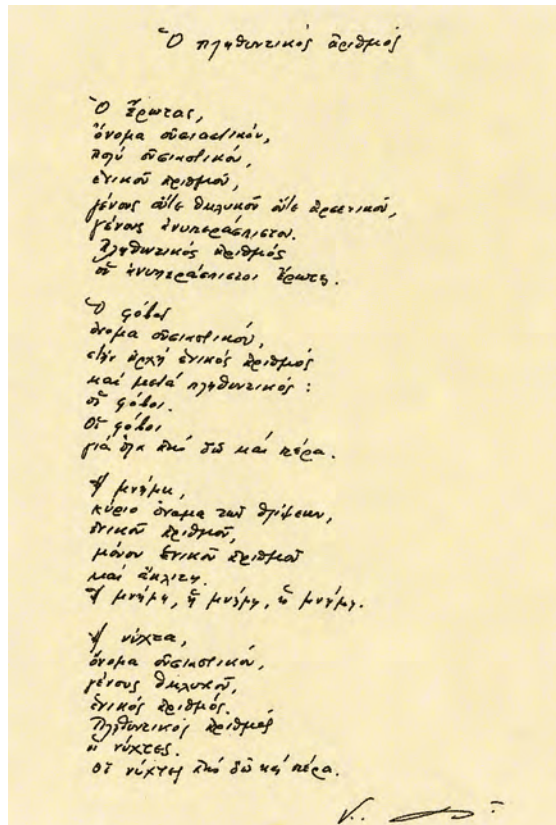 Ὁ πληθυντικός ἀριθμός
Ὁ ἔρωτας,
ὄνομα οὐσιαστικόν,
πολύ οὐσιαστικόν,
ἑνικοῦ ἀριθμοῦ,
γένους οὔτε θηλυκοῦ οὔτε ἀρσενικοῦ,
γένους ἀνυπεράσπιστου.
Πληθυντικός ἀριθμός
οἱ ἀνυπεράσπιστοι ἔρωτες.
Ὁ φόβος
ὄνομα οὐσιαστικόν,
στήν ἀρχή ἑνικός ἀριθμός
καί μετά πληθυντικός :
οἱ φόβοι.
Οἱ φόβοι
γιά ὅλα ἀπό δῶ καί πέρα.
Ἡ μνήμη,
κύριο ὄνομα τῶν θλίψεων,
ἑνικοῦ ἀριθμοῦ,
μόνον ἑνικοῦ ἀριθμοῦ
καί ἄκλιτη.
Ἡ μνήμη, ἡ μνήμη, ἡ μνήμη.
Ἡ νύχτα,
ὄνομα οὐσιαστικόν,
γένους θηλυκοῦ,
ἑνικός ἀριθμός.
Πληθυντικός ἀριθμός
οἱ νύχτες.
Οἱ νύχτες ἀπό δῶ καί πέρα.